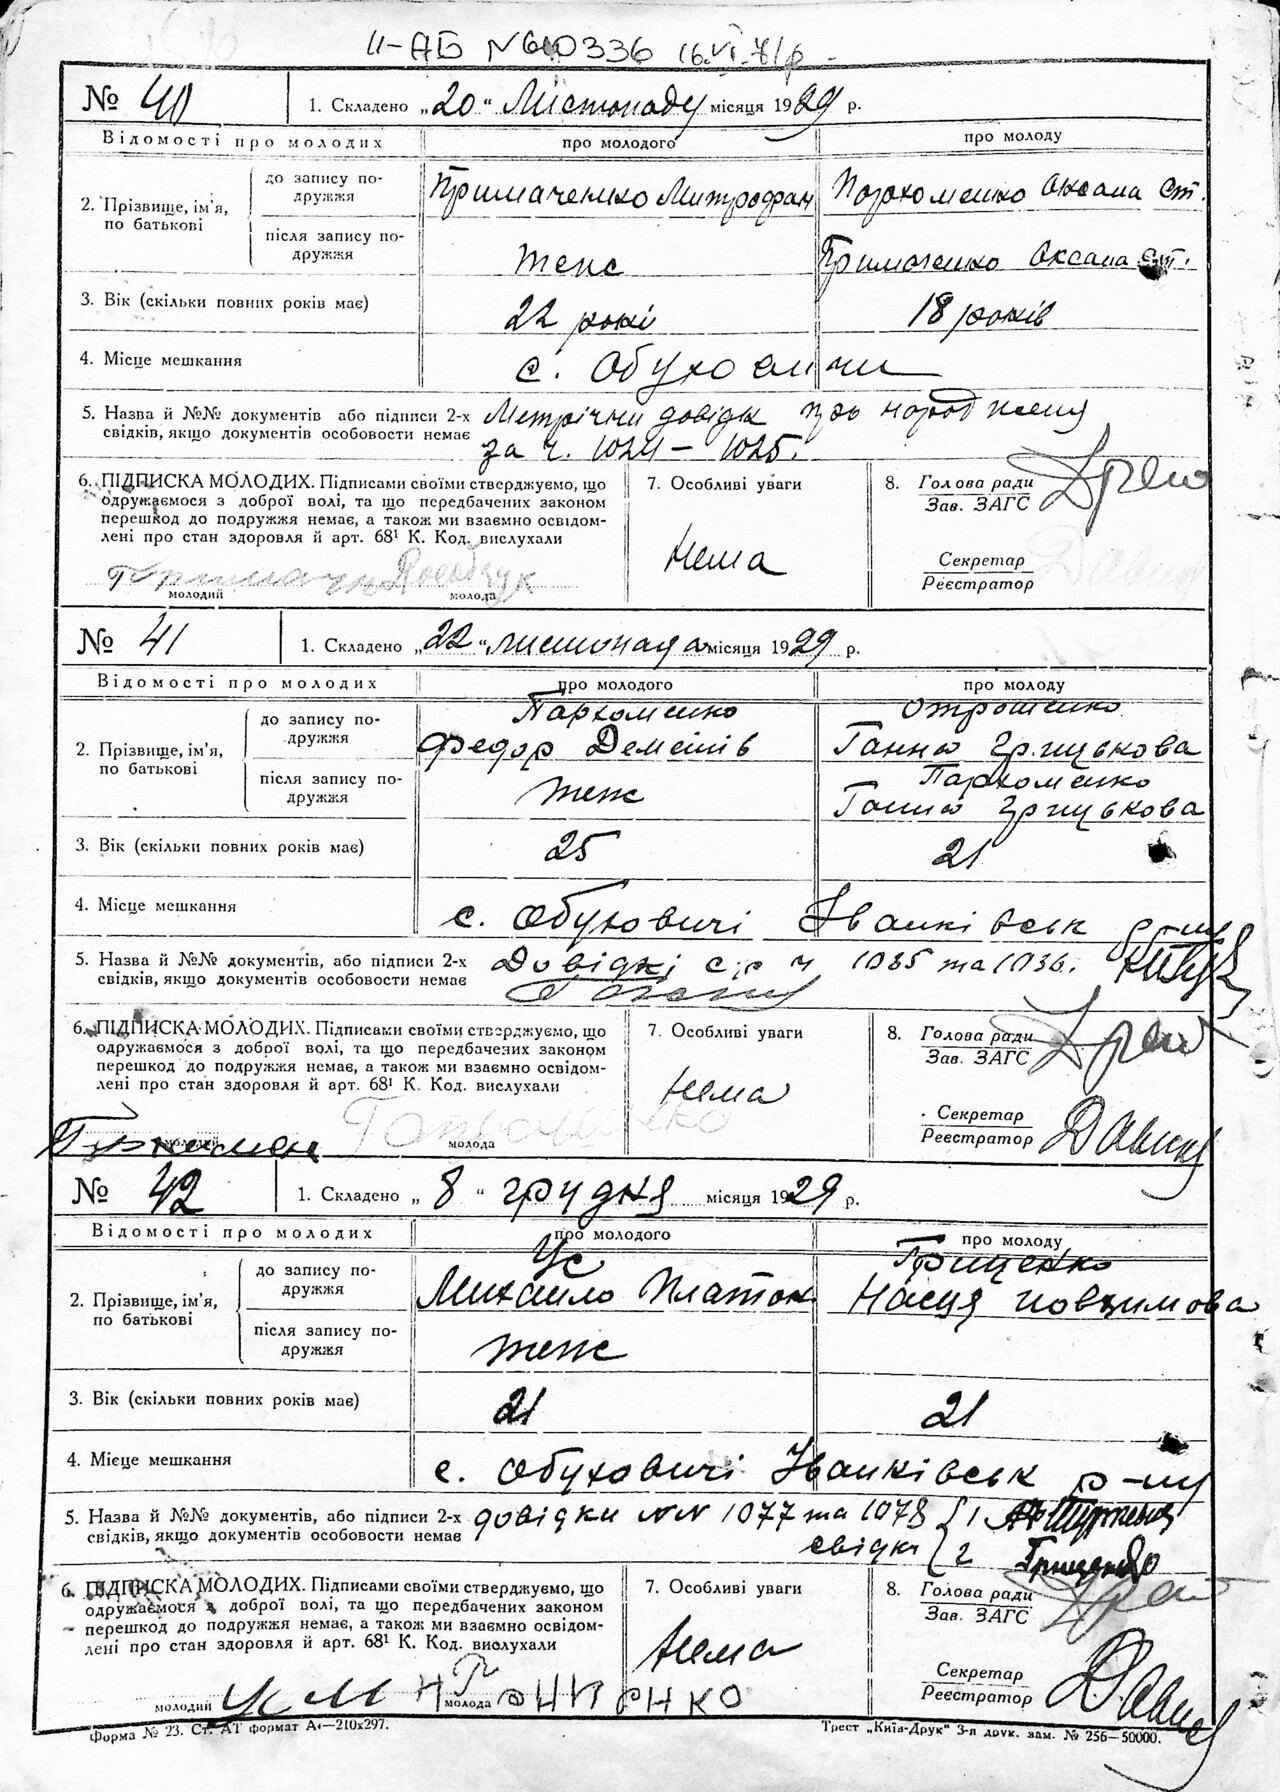 II-АБ № 610336 16.VI.71р.
№ 40 1. Складено „20“ Листопаду місяця 1929 р.
Відомості про молодих про молодого про молоду
2. Прізвище, ім'я, по батькові
до запису подружжя Примаченко Митрофан Пархоменко Оксана Ст.
після запису подружжя теж Примаченко Оксана Ст.
3. Вік (скільки повних років має) 22 роки 18 років
4. Місце мешкання с. Обуховичи
5. Назва й №№ документів або підписи 2-х Метрічни довідк про народження
свідків, якщо документів особовости немає за ч. 1024 – 1025.
6. ПІДПИСКА МОЛОДИХ. Підписами своїми стверджуємо, що
одружаємося з доброї волі, та що передбачених законом
перешкод до подружжя немає, а також ми взаємно освідом-
лені про стан здоровля й арт. 68¹ К. Код. вислухали
молодий молода
7. Особливі уваги
Нема
8. Голова ради
Зав. ЗАГС
Секретар
Реєстратор
№ 41 1. Складено „22“ листопада місяця 1929 р.
Відомості про молодих про молодого про молоду
2. Прізвище, ім'я, по батькові
до запису подружжя Пархоменко Федор Деменів Отрошенко Ганна Грицькова
після запису подружжя теж Пархоменко Ганна Грицькова
3. Вік (скільки повних років має) 25 21
4. Місце мешкання с. Обуховичі Іванківськ р-ну
5. Назва й №№ документів, або підписи 2-х Довідкі с/р ч 1035 та 1036.
свідків, якщо документів особовости немає
6. ПІДПИСКА МОЛОДИХ. Підписами своїми стверджуємо, що
одружаємося з доброї волі, та що передбачених законом
перешкод до подружжя немає, а також ми взаємно освідом-
лені про стан здоровля й арт. 68¹ К. Код. вислухали
молодий молода
7. Особливі уваги
Нема
8. Голова ради
Зав. ЗАГС
Секретар
Реєстратор
№ 42 1. Складено „8“ грудня місяця 1929 р.
Відомості про молодих про молодого про молоду
2. Прізвище, ім'я, по батькові
до запису подружжя Ус Михайло Платон Гриценко Настя
після запису подружжя теж
3. Вік (скільки повних років має) 21 21
4. Місце мешкання с. Обуховичі Іванківськ р-ну
5. Назва й №№ документів, або підписи 2-х довідки NN 1077 та 1078 1
свідків, якщо документів особовости немає свідки 2 Гриценко
6. ПІДПИСКА МОЛОДИХ. Підписами своїми стверджуємо, що
одружаємося з доброї волі, та що передбачених законом
перешкод до подружжя немає, а також ми взаємно освідом-
лені про стан здоровля й арт. 68¹ К. Код. вислухали
молодий Ус М молода
7. Особливі уваги
Нема
8. Голова ради
Зав. ЗАГС
Секретар
Реєстратор
Форма № 23. Ст. АТ формат А₄—210х297. Трест „Київ-Друк“ 3-я друк. зам. № 256—50000.